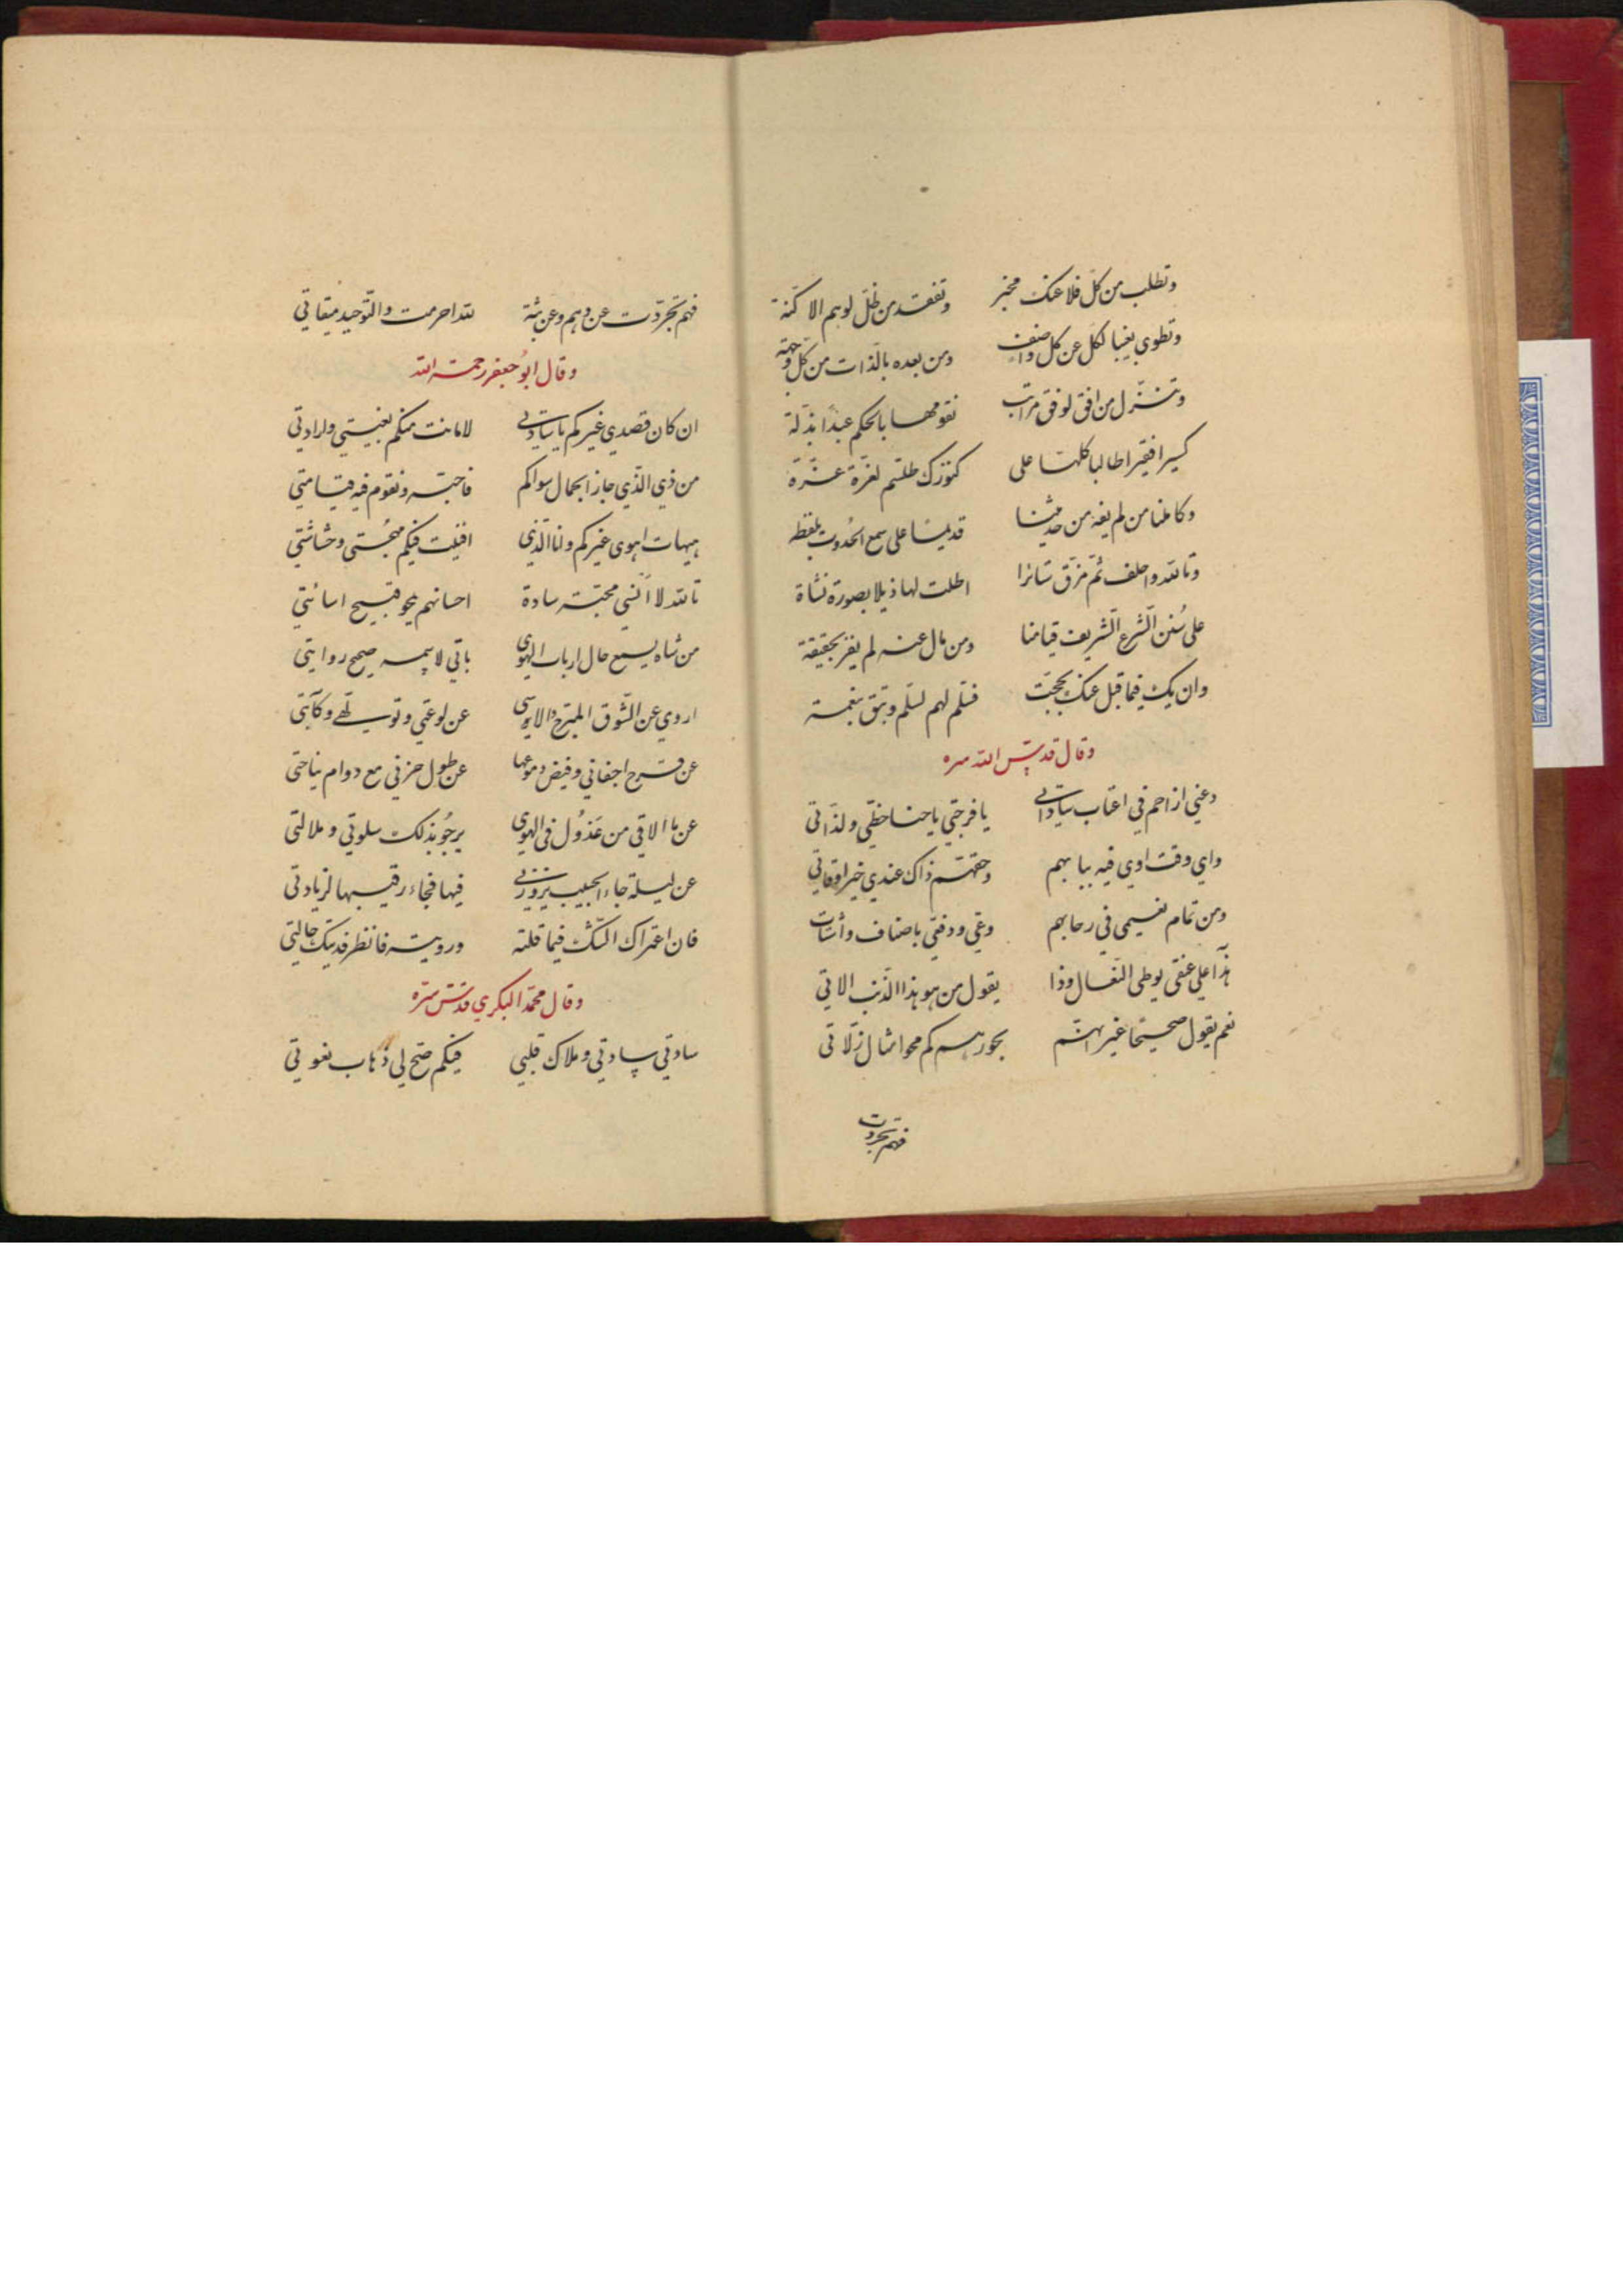 وتطلب من كل فلا عنك مخبر وتفقد من ظل لوهم الاكنة
وتطوي بغيب الكل عن كل واصف ومن بعده بالذات من كل وجهة
وتنزل من افق لوفق مراتب نقومها بالحكم عبدا بذلة
كسيرا فقيرا طالبا كلها على كنوزك طلسم لغرة عزة
وكاملنا من لم يغه من حديثنا قديما على سمع الحدوث بلفظه
وتالله واحلف ثم مزق ساترا اطلت لها ذيلا بصورة نشاة
على سُنن الشرع الشريف قيامنا ومن مال عنه لم يفز بحقيقة
وان يك فيما قبل عنك بحجبت فسلم لهم تسلم وتبق بنعمة
وقال قدس الله سره
دعني ازاحم في اعتاب ساداتي يا فرحتي يا هنا حظي ولذاتي
واي وقت اوي فيه ببابهم وحقهم ذاك عندي خير اوقاتي
ومن تمام نعيمي في رحابهم وقتي باصناف واشتات
هذا على عنقي يوطى النعال وذا يقول من هو هذا الذنب الاتي
نعم يقول صحيحا غير ابحوركم محو امثال زلاتي
فهم تجردت
فهم تجردت عن وهم وعن لله احرمت والتوحيد ميقاتي
وقال ابو جعفر رحمة الله
ان كان قصدي غيركم يا سادتي لا نلت منكم بغيتي وارادتي
من ذي الذي حاز الجمال سواكم فاحبه وتقوم فيه قيامتي
هيهات اهوى غيركم وانا الذي افنيت فيكم مهجتي وحشاشتي
تالله لا انسي محبة سادة احسانهم يمحو قبيح اسائتي
من شاه يسمع حال ارباب الهوى ياتي لاسمعه صحيح روايتي
اروي عن الشوق المبرح والاسى عن لوعتي وتولهي وكآبتي
عن قرح اجفاني وفيض دموعها عن طول حزني مع دوام نياحتي
عن ما الاقي من عذُول في الهوى يرجُو بذلك سلوتي وملالتي
عن ليلة جاء الحبيب يزورني فيها فجاء رقيبها لزيادتي
فان اعتراك الشك فيما قلته ورويته فانظر فديتك حالتي
وقال محمد البكري قدس سره
سادتي سادتي وملاك قلبي فيكم صح لي ذهاب نعوتي